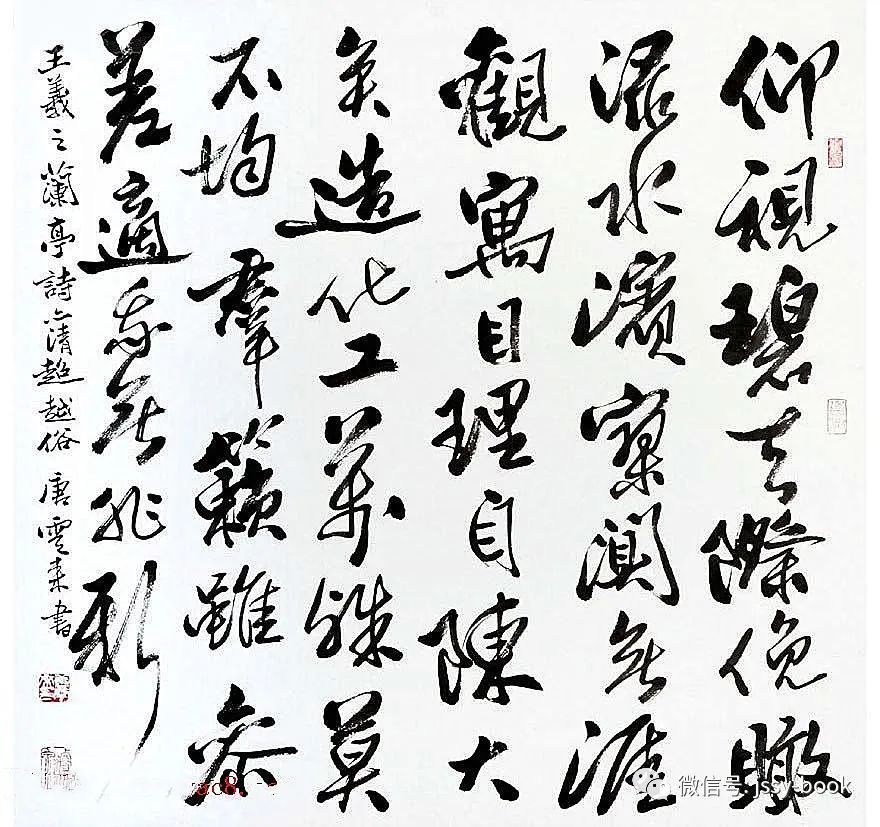 仰視碧天際俛瞰
渌水濱寥闃無涯
觀寓目理自陳大
矣造化工萬殊莫
不均羣籟雖參
差適我無非新
王羲之蘭亭詩清超越俗 唐雲来書
微信号: jssy-book